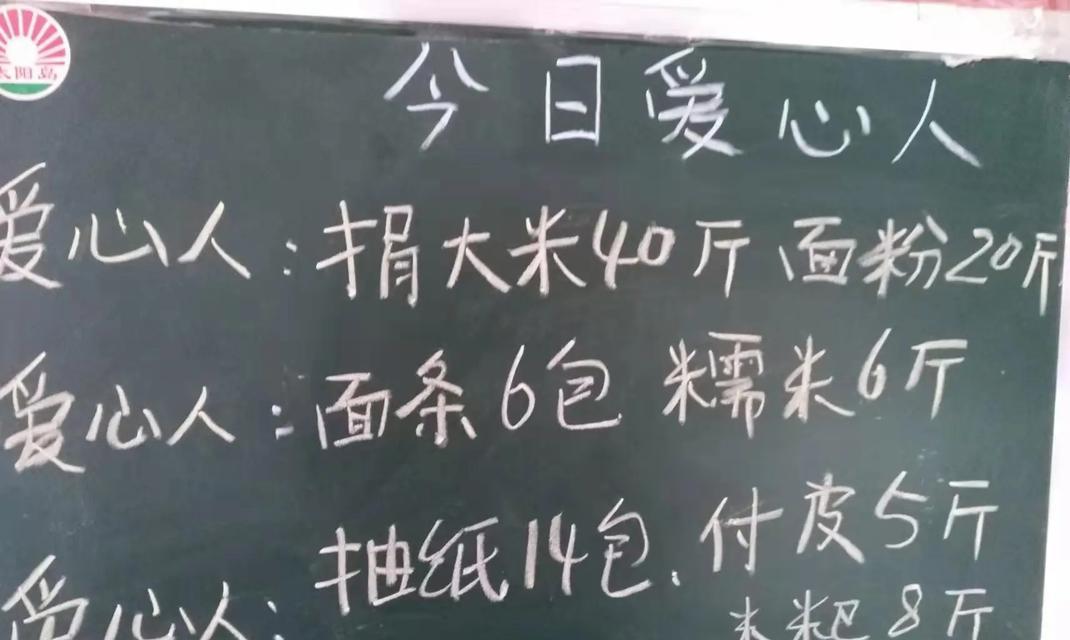 太阳岛
今日爱心人
爱心人:捐大米40斤 面粉20斤
爱心人:面条6包 糯米6斤
抽纸14包、付皮5斤
爱心人:
米粑8斤